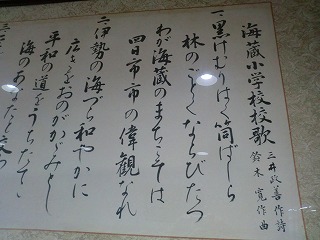 海蔵小学校校歌
三井政善 作詩
鈴木寛 作曲
一、黒けむりはく筒ばしら
林のごとくならびたつ
わが海蔵のまちこそは
四日市市の偉観なれ
二、伊勢の海づら和やかに
広きをおのがかがみとし
平和の道をうちたてゝ
海のあなたと